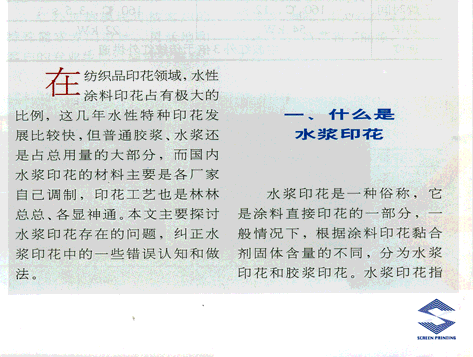 在纺织品印花领域，水性
涂料印花占有极大的
比例，这几年水性特种印花发
展比较快，但普通胶浆、水浆还
是占总用量的大部分，而国内
水浆印花的材料主要是各厂家
自己调制，印花工艺也是林林
总总、各显神通。本文主要探讨
水浆印花存在的问题，纠正水
浆印花中的一些错误认知和做
法。
一、什么是
水浆印花
水浆印花是一种俗称，它
是涂料直接印花的一部分，一
般情况下，根据涂料印花黏合
剂固体含量的不同，分为水浆
印花和胶浆印花。水浆印花指
SCREEN PRINTING